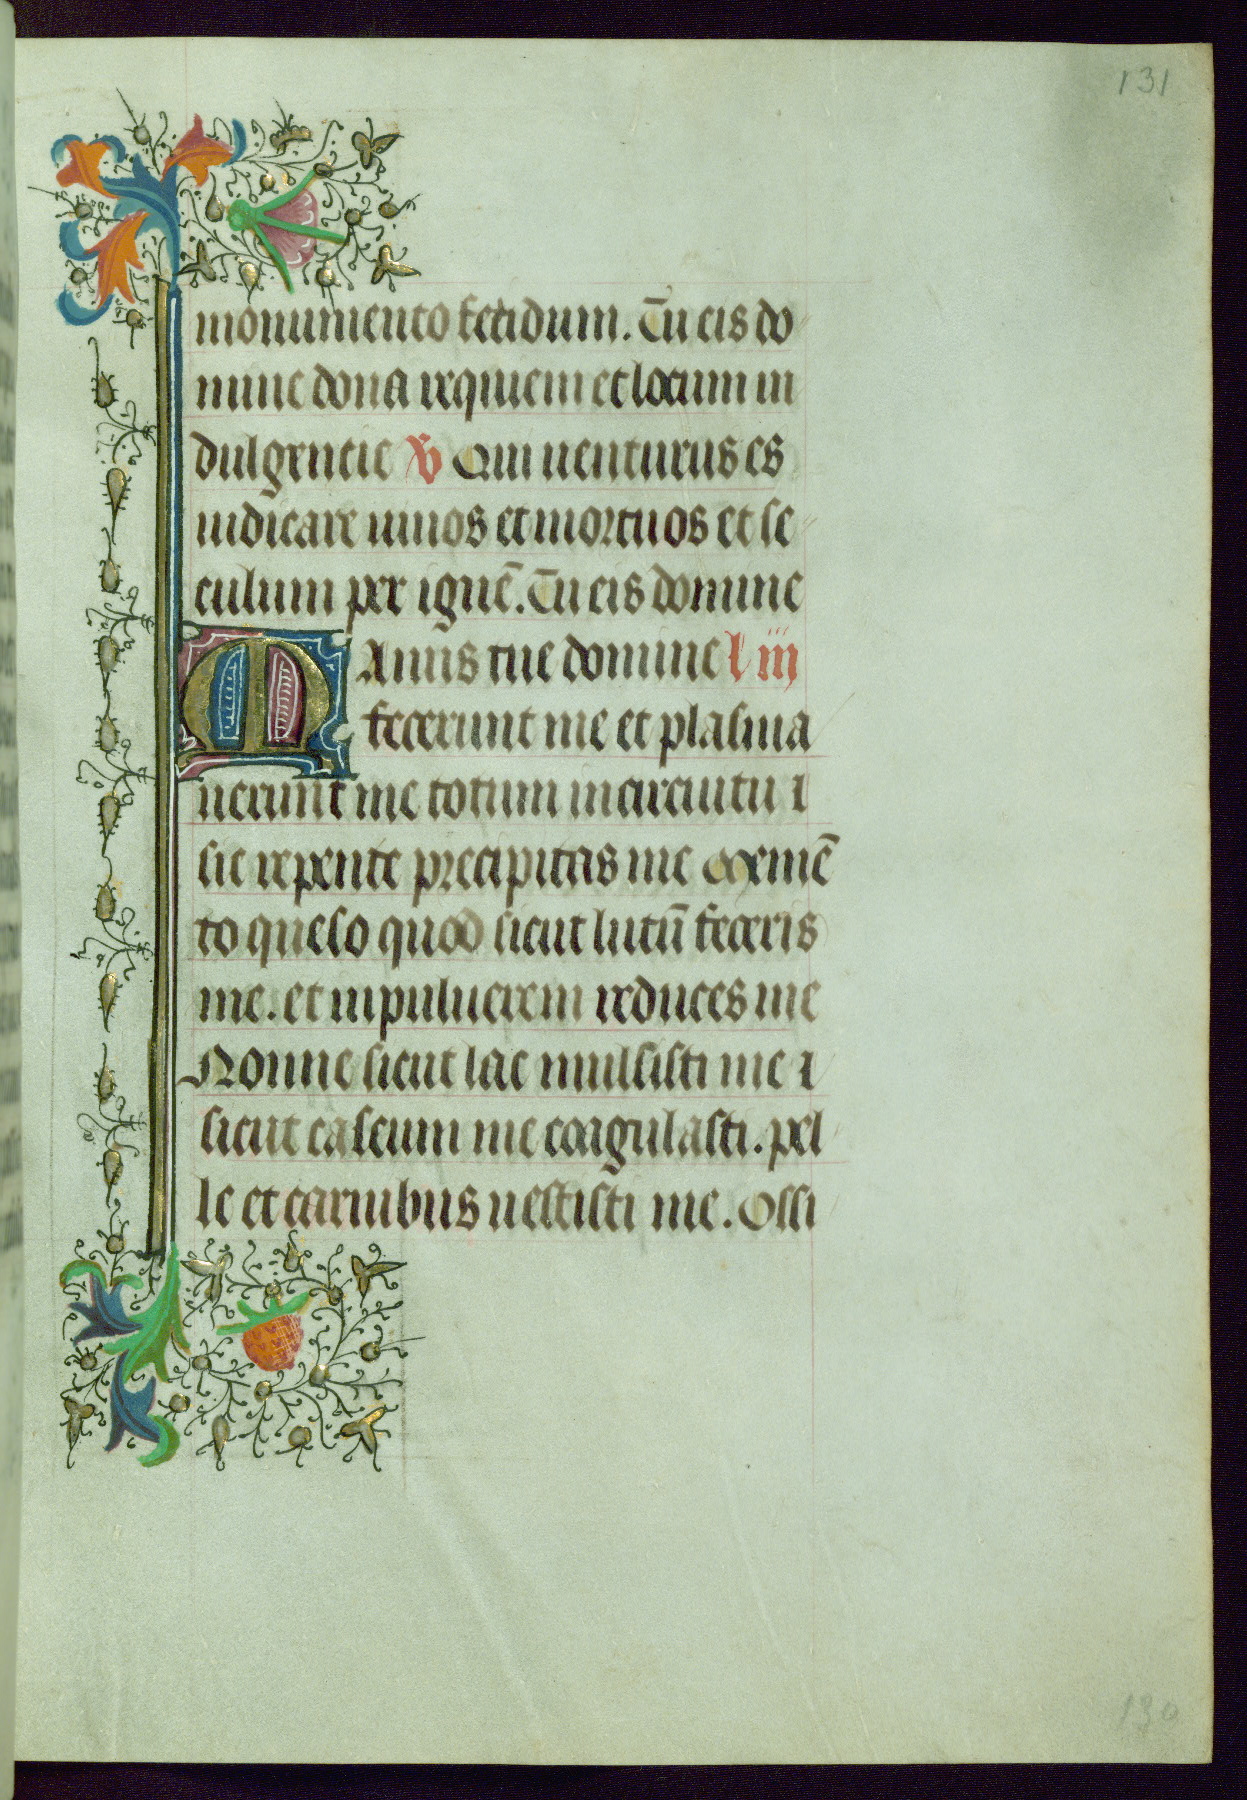 131
monumento fetidum. Tu eis do
mine dona requiem et locum in
dulgentie ℣ Qui uenturus es
iudicare uiuos et mortuos et se
culum per ignē. Tu eis domine
Manus tue domine l iii
fecerunt me et plasma
uerunt me totum in circuitu ⁊
sic repente precipitas me Memē
to queso quod sicut lutū feceris
me. et in puluerem reduces me
Nonne sicut lac mulsisti me ⁊
sicut caseum me coagulasti. pel
le et carnibus uestisti me. Ossi
130